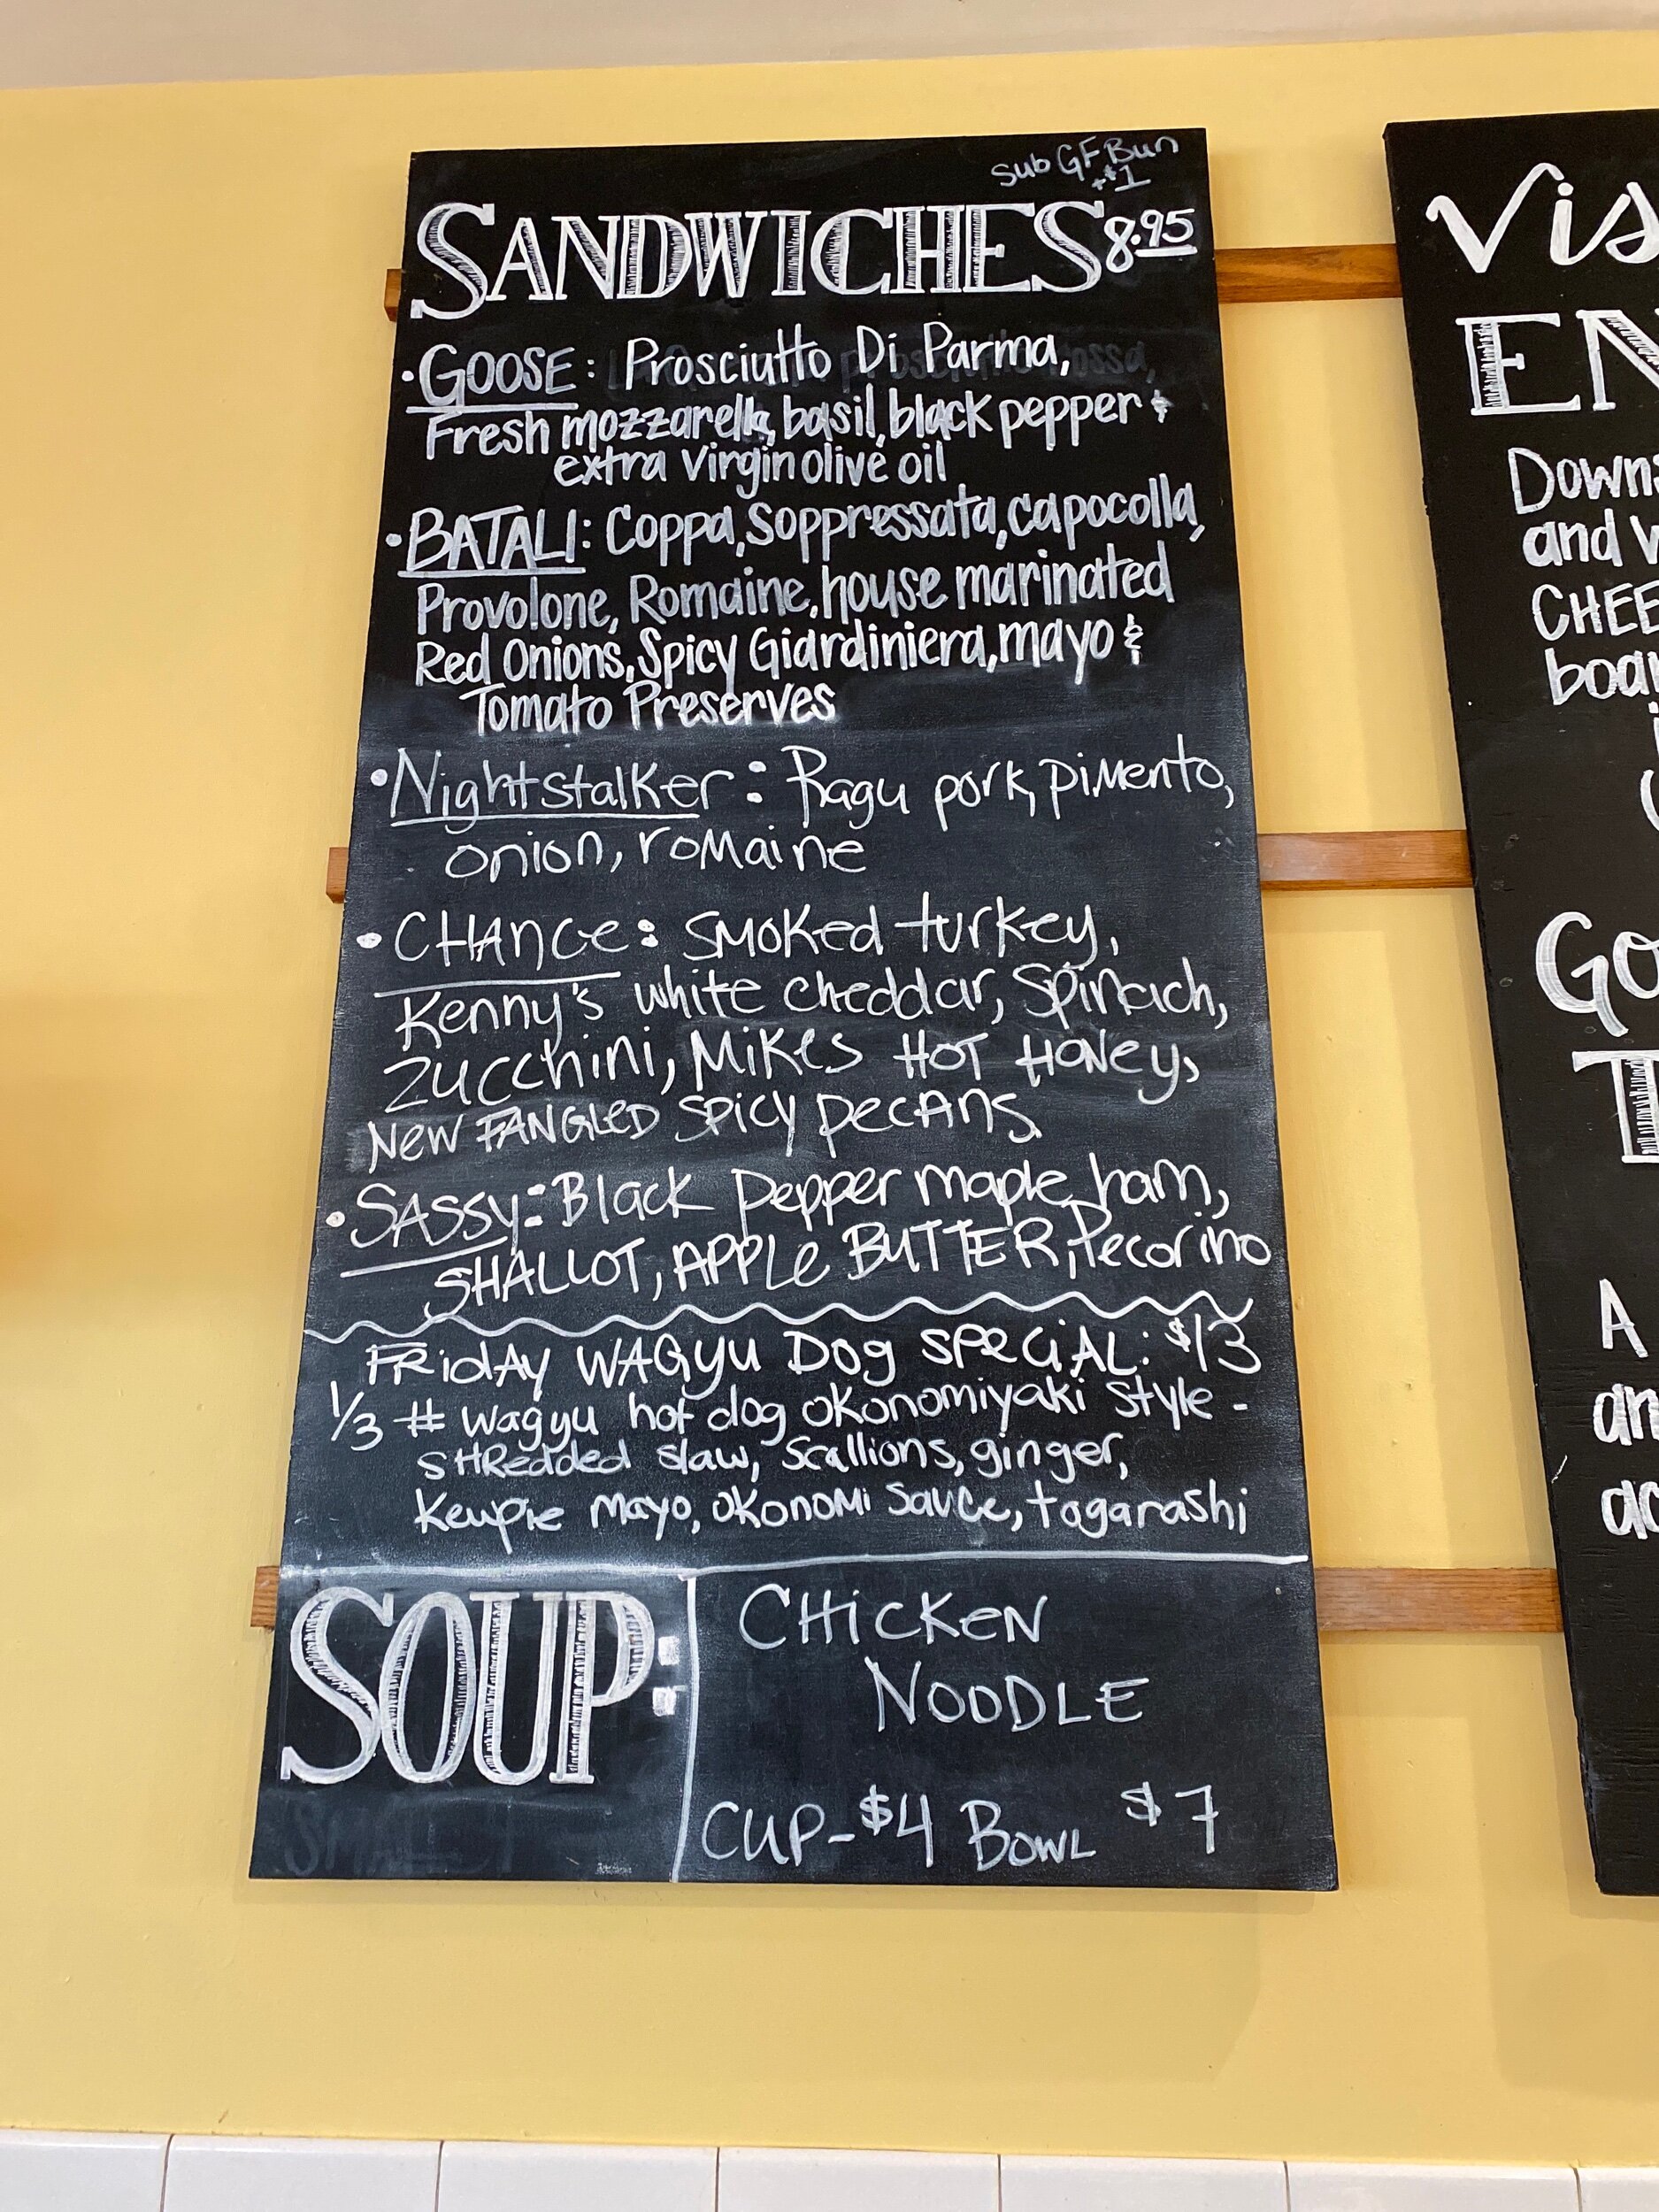 Sub GF Bun
+$1
SANDWICHES 8.95
• GOOSE: Prosciutto Di Parma,
Fresh mozzarella, basil, black pepper &
extra virgin olive oil
• BATALI: Coppa, Soppressata, capocolla,
Provolone, Romaine, house marinated
Red Onions, Spicy Giardiniera, mayo &
Tomato Preserves
• Nightstalker: Ragu pork, pimento,
onion, romaine
• CHANCE: Smoked turkey,
Kenny's white cheddar, Spinach,
Zucchini, Mikes HOT HONey,
New FANGLED SPICY pecans
• SASSY: Black Pepper maple ham,
SHALLOT, APPLE BUTTER, Pecorino
FRiDAY WAGyu Dog SPECiAL: $13
1/3 # wagyu hot dog okonomiyaki style -
SHRedded slaw, Scallions, ginger,
Kewpie mayo, okonomi sauce, togarashi
SOUP:
CHiCKEN
NOODLE
CUP-$4 BOWL $7
Vis
EN
Down
and
CHEE
boar
Go
T
A
an